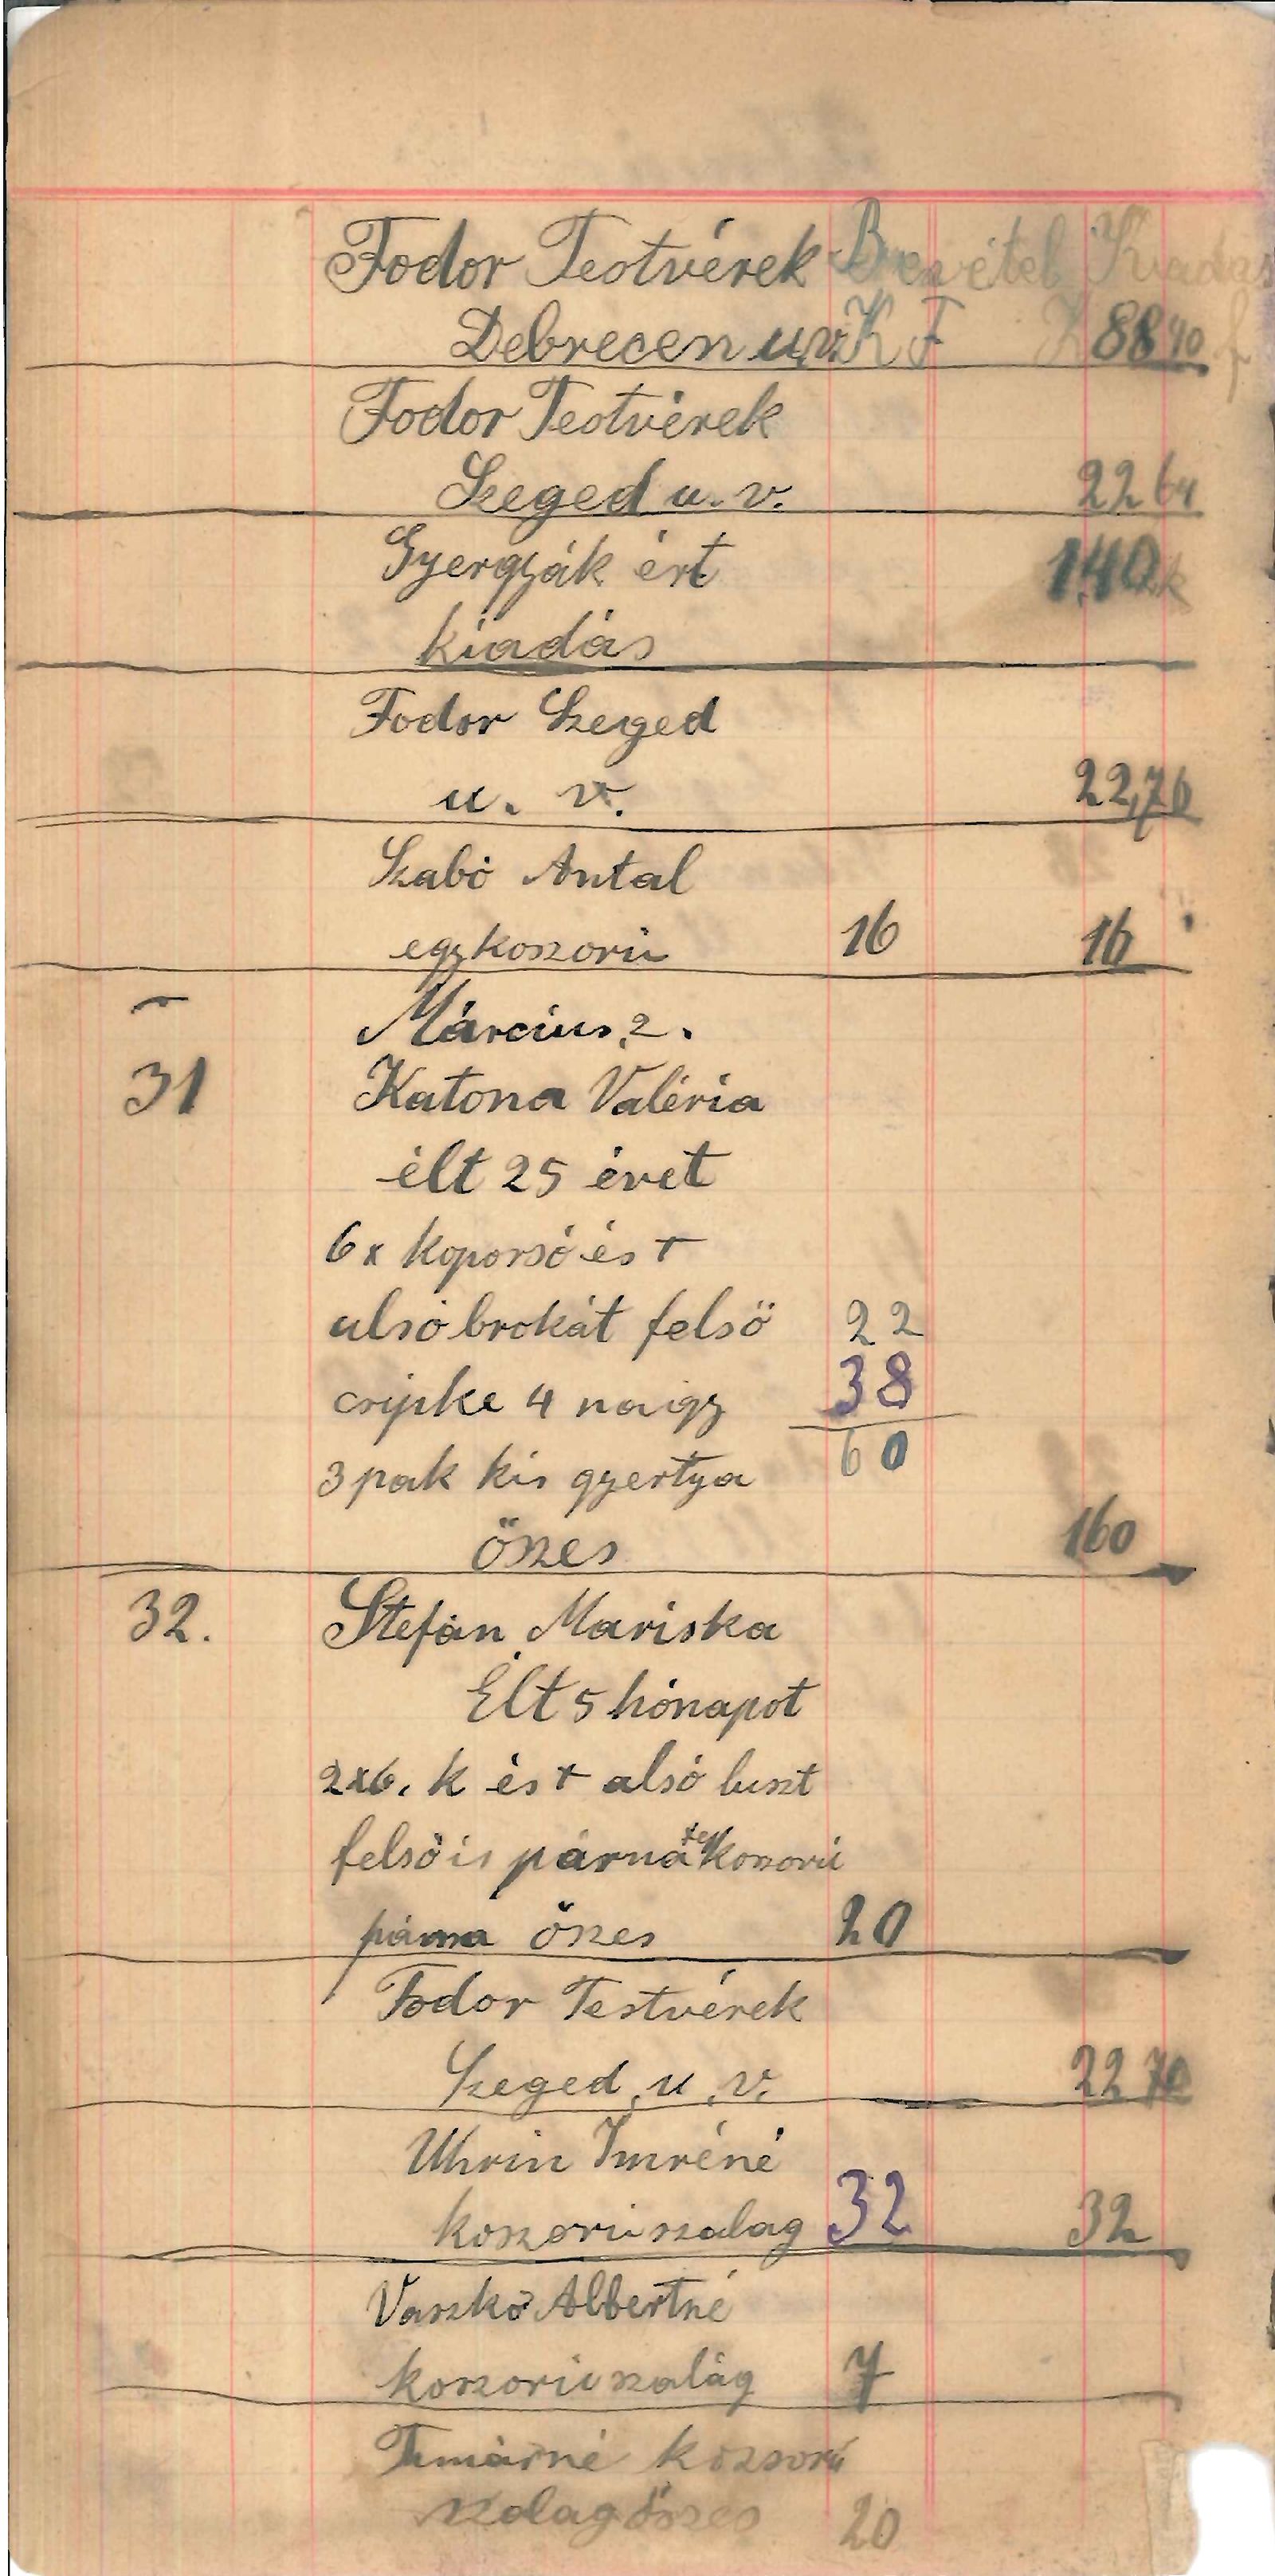 Fodor Testvérek Bevétel Kiadás
Debrecen u.v. K F K 88 40 f
Fodor Testvérek
Szeged u. v. 22 64
Gyergyák ért 140 k
kiadás
Fodor Szeged
u. v. 22,76
Szabó Antal
egy koszorú 16 16
Március 2.
31 Katona Valéria
élt 25 évet
6 x koporsó és +
alsó brokát felsö 22
csipke 4 nagy 38
60
3 pak kis gyertya
öszes 160
32. Stefán Mariska
Élt 5 hónapot
2x6. k és + alsó luszt
felsö is párna koszorú
párna öszes 20
Fodor Testvérek
Szeged, u. v. 22 70
Uhrin Imréné
koszorú szalag 32 32
Vaszkó Albertné
koszorú szalág 7
Timárné kozsorú
szalag öszes 20